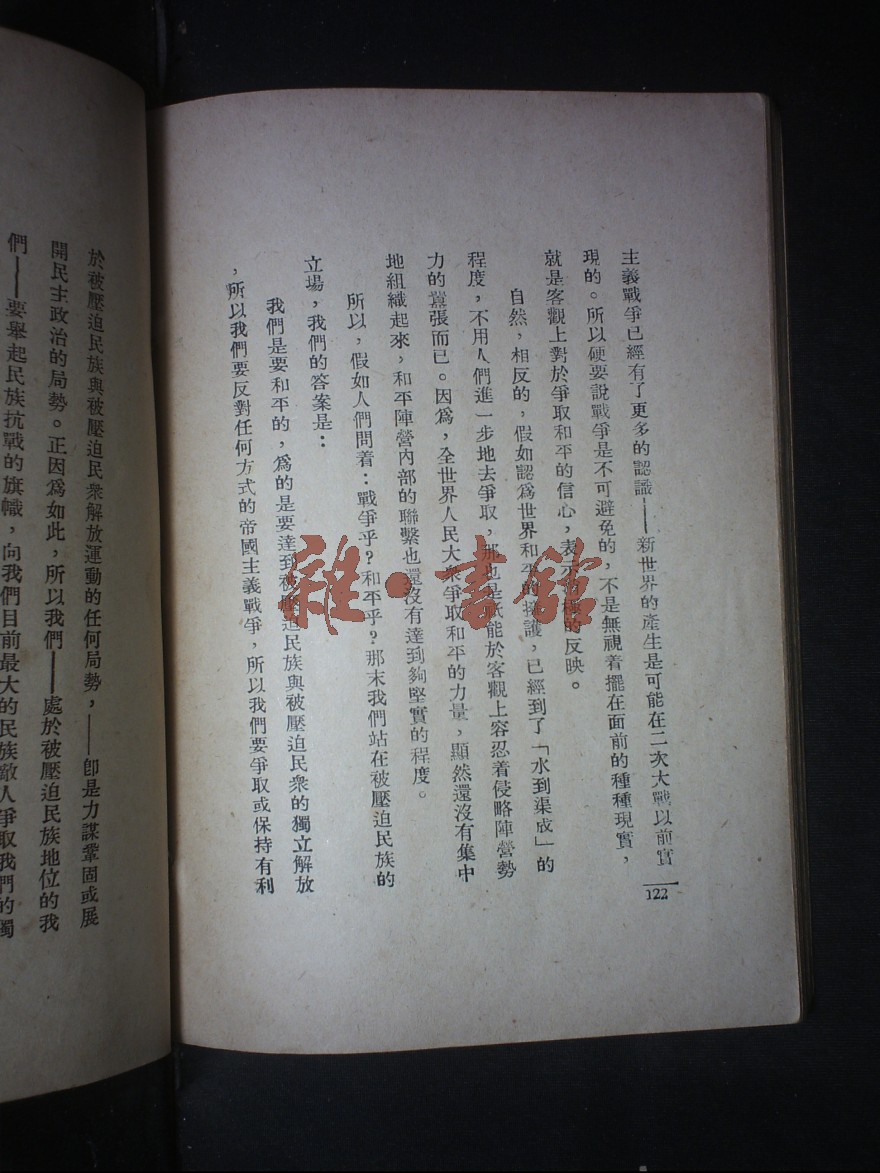 主義戰爭已經有了更多的認識——新世界的產生是可能在二次大戰以前實
現的。所以硬要說戰爭是不可避免的，不是無視着擺在面前的種種現實，
就是客觀上對於爭取和平的信心，表示 極的反映。
自然，相反的，假如認爲世界和平的 護，已經到了「水到渠成」的
程度，不用人們進一步地去爭取，那也是祇能於客觀上容忍着侵略陣營勢
力的囂張而已。因爲，全世界人民大衆爭取和平的力量，顯然還沒有集中
地組織起來，和平陣營內部的聯繫也還沒有達到夠堅實的程度。
所以，假如人們問着：戰爭乎？和平乎？那末我們站在被壓迫民族的
立場，我們的答案是：
我們是要和平的，爲的是要達到被壓迫民族與被壓迫民衆的獨立解放
，所以我們要反對任何方式的帝國主義戰爭，所以我們要爭取或保持有利
122
於被壓迫民族與被壓迫民衆解放運動的任何局勢，——卽是力謀鞏固或展
開民主政治的局勢。正因爲如此，所以我們——處於被壓迫民族地位的我
們——要舉起民族抗戰的旗幟，向我們目前最大的民族敵人爭取我們的獨
雜·書館